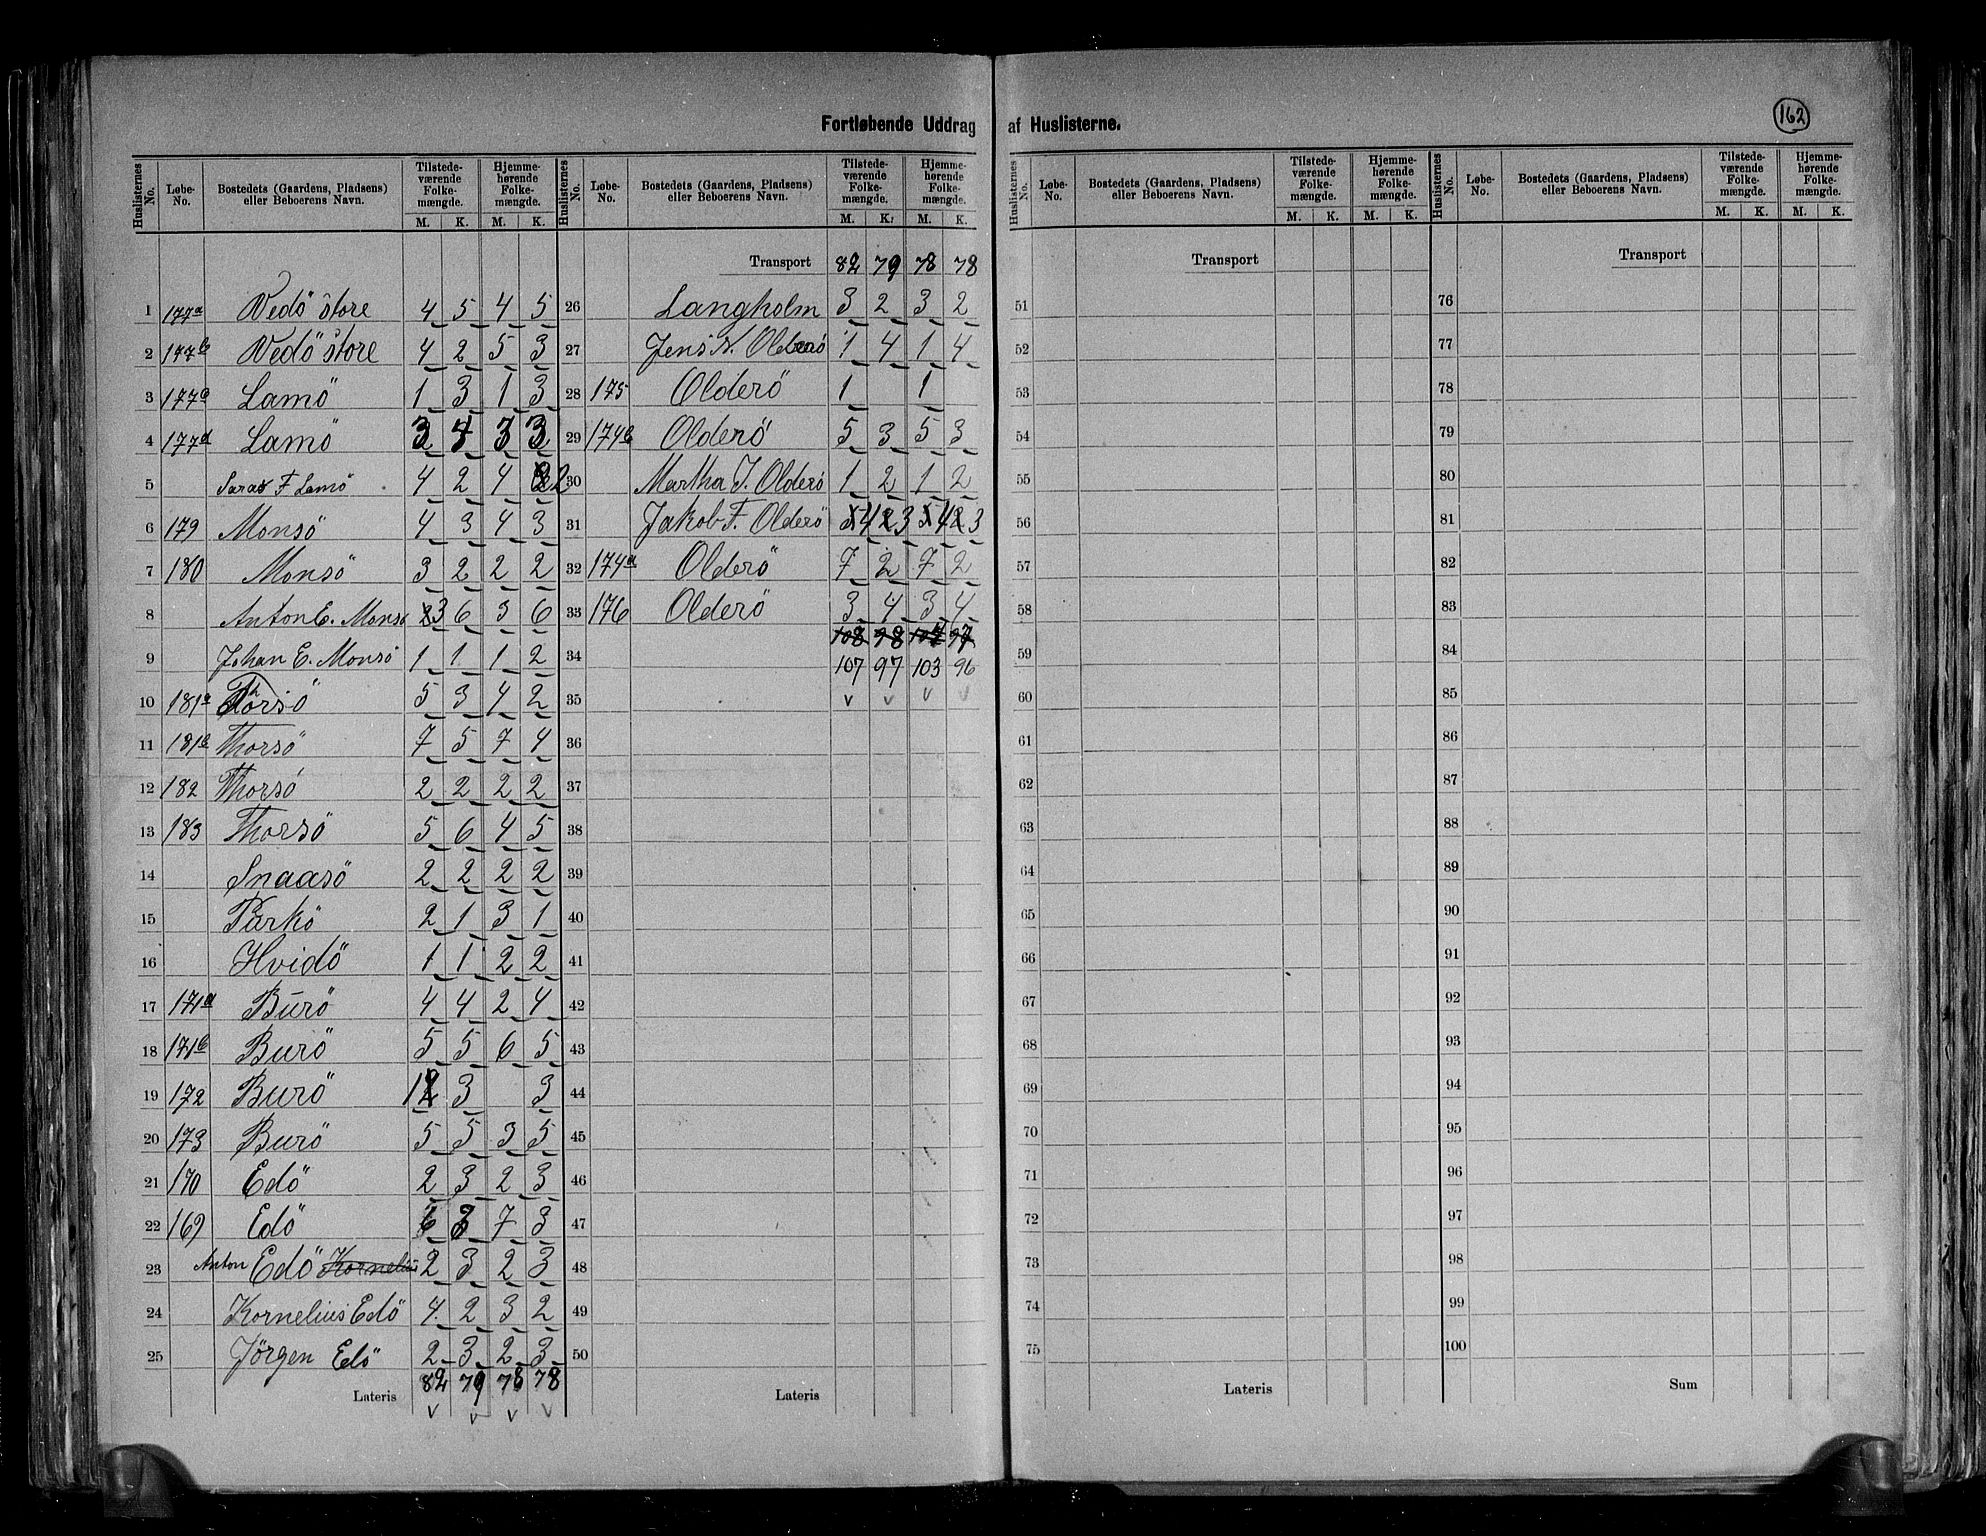 162
Fortløbende Uddrag af Huslisterne.
Huslisternes No. Løbe-No. Bostedets (Gaardens, Pladsens) eller Beboerens Navn. Tilstedeværende Folkemængde. M. K. Hjemmehørende Folkemængde. M. K.
1 177a Vedö store 4 5 4 5
2 177b Vedö store 4 2 5 3
3 177c Lamö 1 3 1 3
4 177d Lamö 3 3 3
5 Saras F Lamö 4 2 4 2
6 179 Monsö 4 3 4 3
7 180 Monsö 3 2 2 2
8 Anton E. Monsö 3 6 3 6
9 Johan E. Monsö 1 1 1 2
10 181a Thorsö 5 3 4 2
11 181b Thorsö 7 5 7 4
12 182 Thorsö 2 2 2 2
13 183 Thorsö 5 6 4 5
14 Snaasö 2 2 2 2
15 Purkö 2 1 3 1
16 Hvidö 1 1 2 2
17 171a Burö 4 4 2 4
18 171b Burö 5 5 6 5
19 172 Burö 1 3 3
20 173 Burö 5 5 3 5
21 170 Edö 2 3 2 3
22 169 Edö 6 3 7 3
23 Anton Edö Kornelius 2 3 2 3
24 Kornelius Edö 4 2 3 2
25 Jörgen Edö 2 3 2 3
Lateris 82 79 78 78
v v v v
Huslisternes No. Løbe-No. Bostedets (Gaardens, Pladsens) eller Beboerens Navn. Tilstedeværende Folkemængde. M. K. Hjemmehørende Folkemængde. M. K.
Transport 82 79 78 78
26 Langholm 3 2 3 2
27 Jens N. Olderö 1 4 1 4
28 175 Olderö 1 1
29 174b Olderö 5 3 5 3
30 Martha J. Olderö 1 2 1 2
31 Jakob F. Olderö 5 4 2 3 5 4 2 3
32 174a Olderö 7 2 7 2
33 176 Olderö 3 4 3 4
108 98 104 97
34 107 97 103 96
35 v v v v
36
37
38
39
40
41
42
43
44
45
46
47
48
49
50
Lateris
Huslisternes No. Løbe-No. Bostedets (Gaardens, Pladsens) eller Beboerens Navn. Tilstedeværende Folkemængde. M. K. Hjemmehørende Folkemængde. M. K.
Transport
51
52
53
54
55
56
57
58
59
60
61
62
63
64
65
66
67
68
69
70
71
72
73
74
75
Lateris
Huslisternes No. Løbe-No. Bostedets (Gaardens, Pladsens) eller Beboerens Navn. Tilstedeværende Folkemængde. M. K. Hjemmehørende Folkemængde. M. K.
Transport
76
77
78
79
80
81
82
83
84
85
86
87
88
89
90
91
92
93
94
95
96
97
98
99
100
Sum